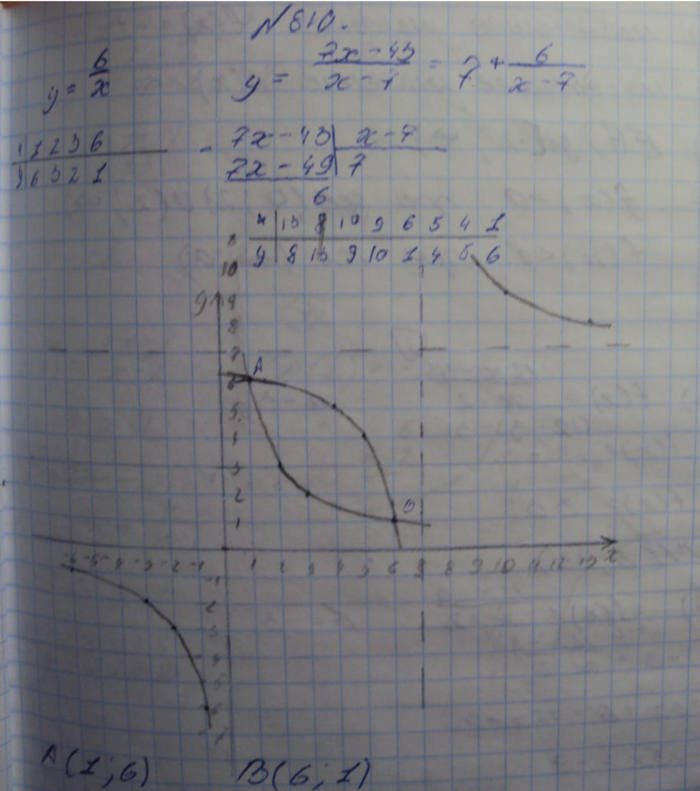 № 610.
y = 6/x
y = (7x - 43)/(x - 7) = 7 + 6/(x - 7)
1 2 3 6
6 3 2 1
- 7x - 43 | x - 7
7x - 49 | 7
6
x | 13 8 10 9 6 5 4 1
y | 8 13 9 10 1 4 5 6
y
10
9
8
7
6 A
5
3
2
1 B
-6 -5 -4 -3 -2 -1 1 2 3 4 5 6 7 8 9 10 11 12 13 x
-1
-2
-3
-4
-5
-6
A(1; 6) B(6; 1)